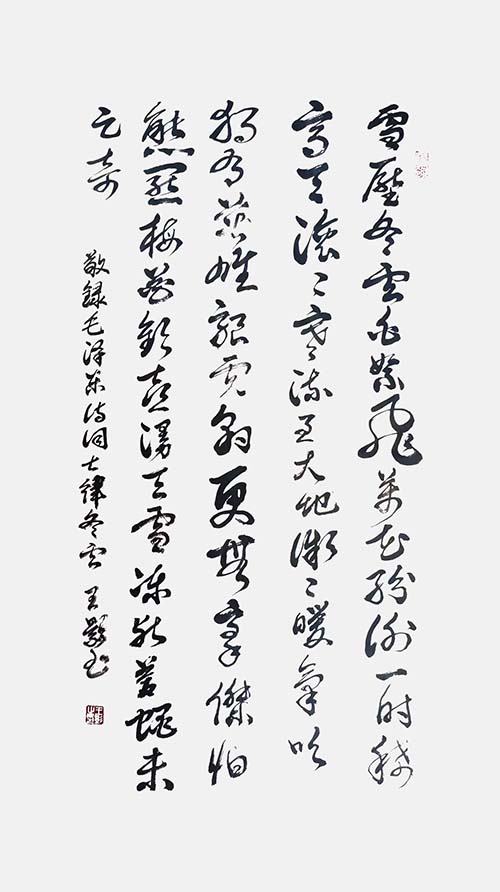 雪壓冬雲白絮飛萬花紛謝一時稀
高天滚々寒流急大地微々暖氣吹
獨有英雄驅虎豹更無豪傑怕
熊羆梅花歡喜漫天雪凍死蒼蠅未
足奇
敬録毛泽东诗词七律冬雲 王影书